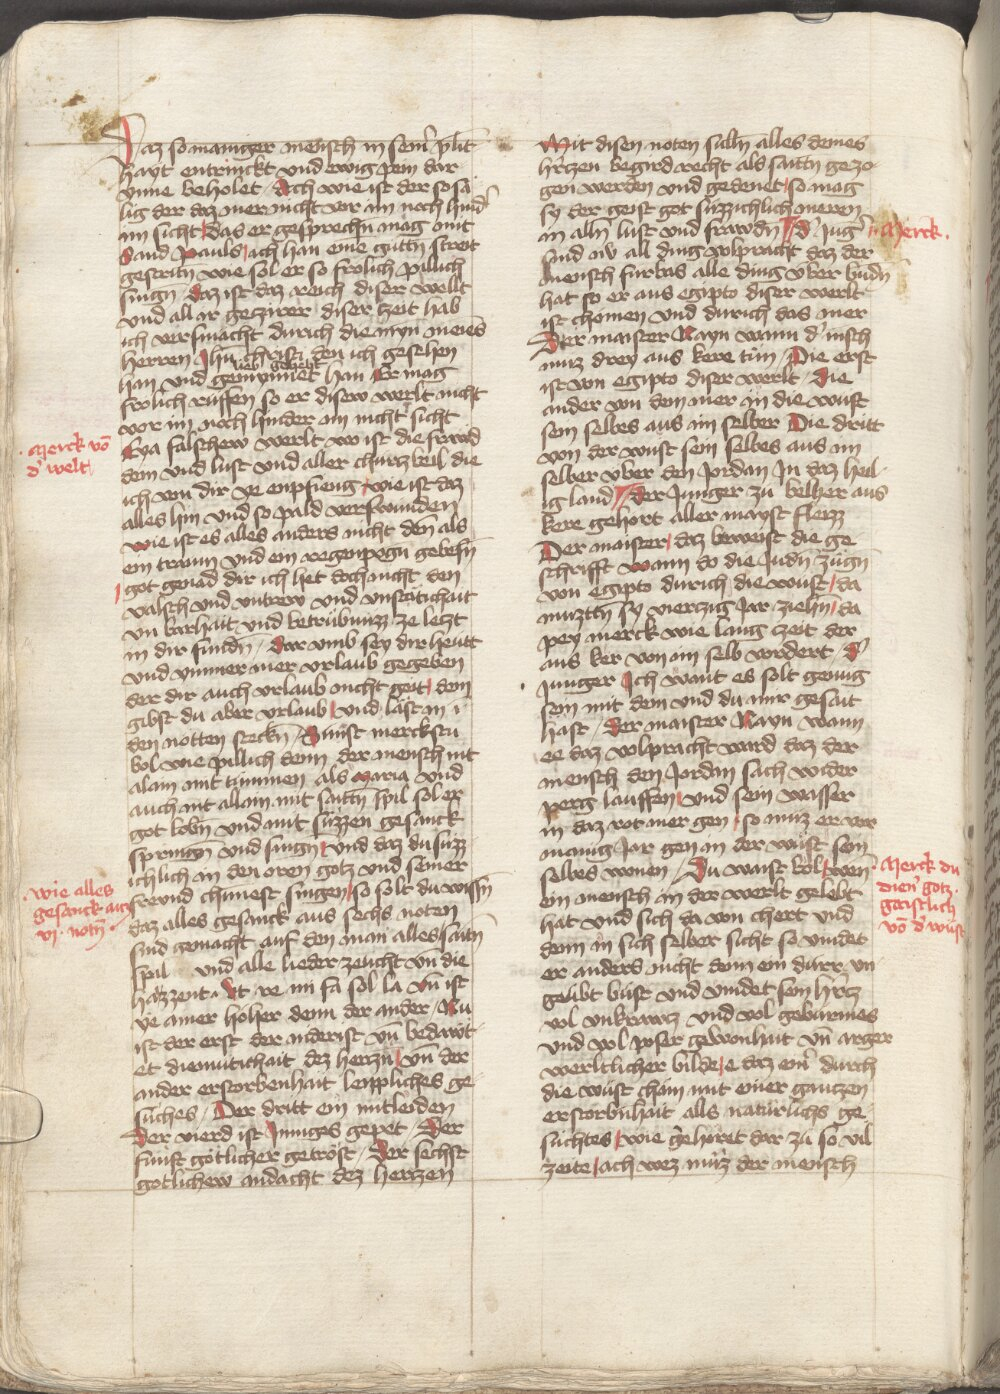 Daz so maniger mensch in sein' plüt
hayt entrinckt vnd ewig pein dar
vnne beholet / Ach wie ist der so sä
lig der daz mer nicht vor im noch hind'
im sicht / das er gesprechn mag mit
Sand Pauls / ach han eine guttn streit
gestritn wie sol er so frölich pillich
singn / daz ist daz reich diser wellt
vnd all ir gezirer diser zeit hab
ich versmächt durich die myn meies
herren Jhu christi den ich gesehen
lieb gehebt
han vnd gemynnet han Er mag
frölich rüffen so er disew werlt nicht
vor im noch hinder im nicht sicht
Eya falschew werlt wo ist die frewd
dein vnd lust vnd aller churczbeil die
ich von dir ye enpfieng / wie ist daz
alles hin vnd so pald verswunden
wie ist es alles anders nicht den als
ein traum vnd ein regenpogn gebesn
got genad dir ich het doch nicht den
valsch vnd vntrew vnd vnstätichait
vn barhait vnd betrübnuzz ze leczt
in dir fundn / Dar vmb sey dir hewtt
vnd ymmer mer vrlaub gegeben
der dir auch vrlaub nicht geit / dem
gibst du aber vrlaub / vnd läst in i
den notten steckn / Sunst merckstu
bol wie pillich denn der mensch nit
alain mit stimmen als Maria vnd
auch nit alain mit saittn spil sol er
got lobn vnd mit süzzen gesanck
springn vnd singn / vnd daz du süzz
ichlich in den oren gotz vnd seiner
frewnd chunnest singen / so solt du wissn
daz alles gesanck aus sechs noten
sind gemacht auf den man alles saittn
spil vnd alle lieder zeucht vn die
haizzent . Vt re mi fa sol la vn ist
ye ainer höher denn der ander / Nu
ist der erst der niderist vn bedäwt
et diemütichait dez herczn / vn der
ander erstorbenhait leipliches ge
süches / Der dritt ein mitleiden
Der vierd ist Inniges gepet / Der
fünft götlicher getröst / Der sechst
gotlichew andacht dez herczen
· Merck võ
d' welt /
· wie alles
gesanck auz
vj · notn ·
Mit disen noten sulln alles deines
herczen begird recht als saittn gezo
gen werden vnd gedenet / so mag
sy der geist got süzzichlich meren
in alln lust vnd frawdn / d' Jug'
sind nw all ding volpracht daz der
mensch fürbas alle ding vber bindn
hat so er aus egipto diser werlt
ist chomen vnd durich das mer
Der maister Nayn wann d' mensch
muz drey aus kere tün / Die erst
ist von egipto diser werlt / Die
ander von dem mer in die wust
sein selbes aus im selber Die dritt
von der wust sein selbes aus im
selber vber den Jordan In daz heil
ig land / Der Junger zu belher aus
kere gehort aller mayst fleizz
Der maister / daz beweist die ge
schrifft wann do die Judn zugn
von egipto durich die wust / da
muztn sy vierczig Jar ziehn / da
pey merck wie lang zeit der
aus ker von im selb vordert / D'
Junger Ich want es solt genug
sein mit dem vnd du mir gesait
hast / Der maister Nayn wann
ee daz volpracht ward daz der
mensch den Jordan sach wider
perg lauffen / vnd sein wasser
in daz rot mer gen / so muz er vor
manig Jar gen in der wüst sein
selbes wonen / Du waist bol / wen
ein mensch in der werlt gelebt
hat vnd sich da von chert vnd
denn in sich selber sicht so vindet
er anders nicht denn ein dürr vn
geübt büst vnd vindet sein hrcz
vol vnkrawcz vnd vol gebürmes
vnd vol pöser gewonhait vn arger
werltlicher bilde / e daz ein' durch
die wüst chäm mit einer ganczen
erstorbnhait alls natürlichs ge
süchtes / wie gehöret dar zu so vil
zeite / ach wez müz der mensch
· Merck ·
· Merck du
dien' gotz
gaistlich
võ d' wüst